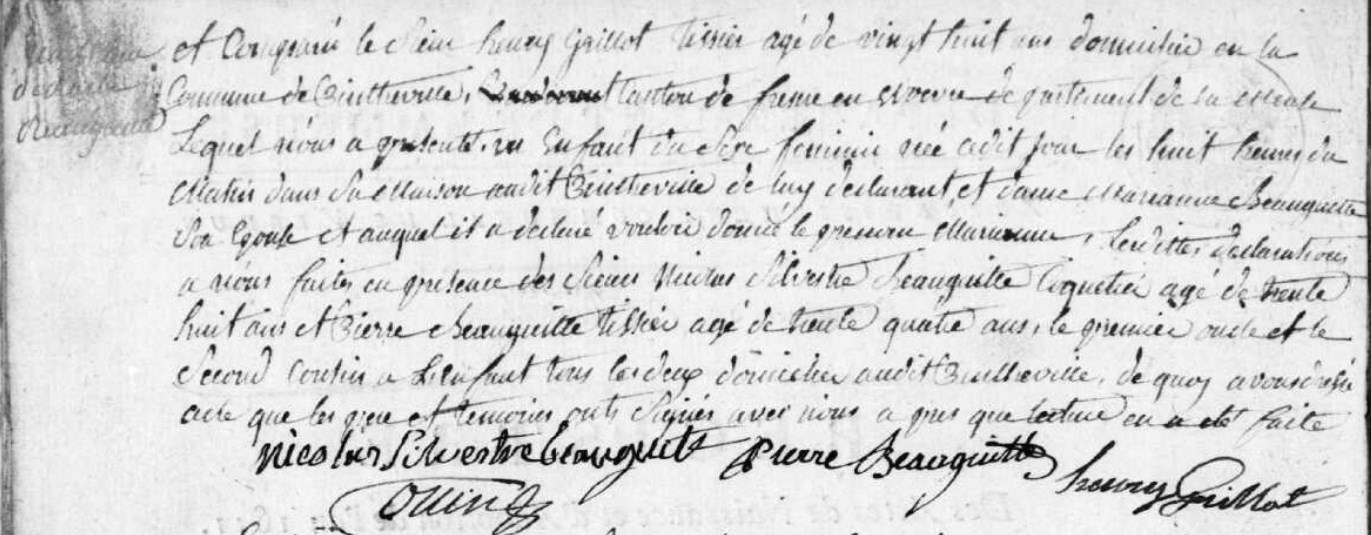 est Comparu le Sieur henry Guillot tissier agé de vingt huit ans domicilié en la
Commune de Butheville, Canton de fresne en Woevre departement de la Meuse
Lequel nous a presenté un Enfant du Sexe feminin née cedit jour les huit heures du
Matin dans Sa Maison audit Butheville de luy declarant, et dame Marianne Beauguitte
Son Epouse et auquel il a declaré vouloir donné le prenom Marianne, Lesdittes declarations
a nous faites en presence des Sieurs Nicolas Silvestre Beauguitte Coquetier agé de trente
huit ans et Pierre Beauguitte tissier agé de trente quatre ans, le premier oncle et le
Second Cousin a L'enfant tous les deux domiciliés audit Butheville, de quoy avons dressé
acte que les pere et temoins onts Signés avec nous apres que lecture en a eté faite
Nicolas Silvestre beauguitte Pierre Beauguitte
henry Guillot